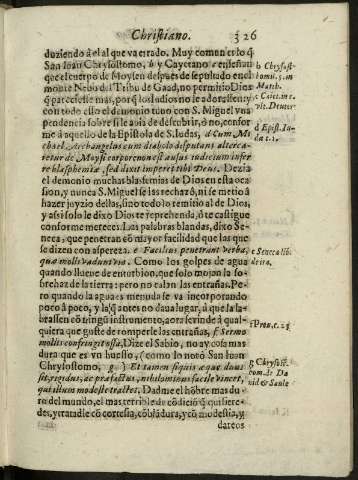 Christiano. 326
duziendo á el al que va errado. Muy comun es lo q̃
San Iuan Chrysostomo, b y Cayetano c enseñan
que el cuerpo de Moysen despues de sepultado en el
monte Nebo del Tribu de Gaad, no permitio Dios
q̃ pareciesse mas, porq̃ los Iudios no le adorassen: y
con todo esso el demonio tuuo con S. Miguel vna
pendencia sobre si le auia de descubrir, ò no, confor
me á aquello de la Epistola de S. Iudas, d Cum Mi
chael Archangelus cum diabolo disputans alterca-
retur de Moysi corpore non est ausus iudicium infer
re blasphemiæ, sed dixit imperet tibi Deus. Dezia
el demonio muchas blasfemias de Dios en esta oca
ssion, y nunca S. Miguel se las rechazó, ni se metio à
hazer juyzio dellas, sino todo lo remitio al de Dios,
y assi solo le dixo Dios te reprehenda, ò te castigue
conforme mereces. Las palabras blandas, dixo Se-
neca, que penetran cõ mayor facilidad que las que
se dizen con aspereza. e Facilius penetrant verba,
quæ mollia vadunt via. Como los golpes de agua
quando llueue de enturbion, que solo mojan la so-
brehaz de la tierra: pero no calan las entrañas. Pe-
ro quando la agua es menuda se va incorporando
poco à poco, y la q̃ antes no daua lugar, ù que la la-
brassen cõ ningũ instrumento, aora se rinde à qual-
quiera que guste de romperle las entrañas, f Sermo
mollis confringit ossa, Dize el Sabio, no ay cosa mas
dura que es vn huesso, (como lo notò San Iuan
Chrysostomo, g) Et tamen si quis æque durus
sit, rigidus, ac præfactus, nihilominus facile vincet,
qui illum modeste tractet. Dadme el hõbre mas du
ro del mundo, el mas terrible de cõdiciõ q̃ quisiere-
des, y tratadle cõ cortesia, cõ blãdura, y cõ modestia, y
dareos
b Chrysost
hom. 5. in
Matth.
c Caiet. in c.
vlt. Deuter
d Epist. Iu-
da c. 1.
e Seneca lib
de ira.
f Prou. c. 25
g Chrysost.
hom. de Da
uid & Saule